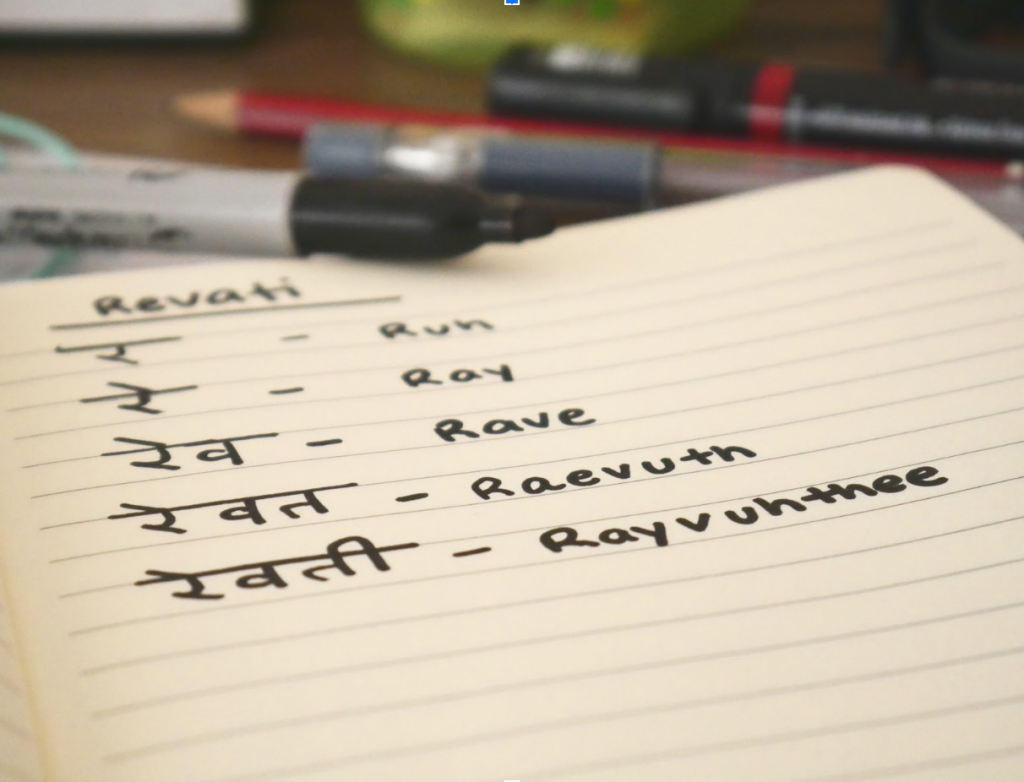 Revati
र - Ruh
रे - Ray
रेव - Rave
रेवत - Raevuth
रेवती - Rayvuhthee